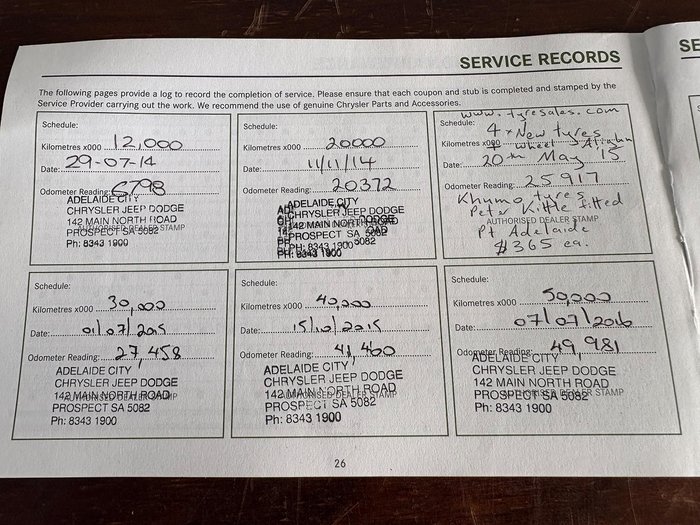 SERVICE RECORDS
SE
The following pages provide a log to record the completion of service. Please ensure that each coupon and stub is completed and stamped by the
Service Provider carrying out the work. We recommend the use of genuine Chrysler Parts and Accessories.
Schedule:
Kilometres x000 12,000
Date: 29-07-14
Odometer Reading: 6798
ADELAIDE CITY
CHRYSLER JEEP DODGE
142 MAIN NORTH ROAD
AUTHORISED DEALER STAMP
PROSPECT SA 5082
Ph: 8343 1900
Schedule:
Kilometres x000 20000
Date: 11/11/14
Odometer Reading: 20372
ADELAIDE CITY
CHRYSLER JEEP DODGE
142 MAIN NORTH ROAD
PROSPECT SA 5082
PH: 8343 1900
www.tyresales.com
Schedule: 4 x New tyres
Kilometres x000 + wheel Align
Date: 20th May 15
Odometer Reading: 25917
Khumo tyres
Peter Kittle fitted
AUTHORISED DEALER STAMP
Pt Adelaide
$365 ea.
Schedule:
Kilometres x000 30,000
Date: 01/07/2015
Odometer Reading: 27,458
ADELAIDE CITY
CHRYSLER JEEP DODGE
142 MAIN NORTH ROAD
AUTHORISED DEALER STAMP
PROSPECT SA 5082
Ph: 8343 1900
Schedule:
Kilometres x000 40,000
Date: 15/10/2015
Odometer Reading: 41,460
ADELAIDE CITY
CHRYSLER JEEP DODGE
142 MAIN NORTH ROAD
AUTHORISED DEALER STAMP
PROSPECT SA 5082
Ph: 8343 1900
Schedule:
Kilometres x000 50,000
Date: 07/07/2016
Odometer Reading: 49,981
ADELAIDE CITY
CHRYSLER JEEP DODGE
142 MAIN NORTH ROAD
AUTHORISED DEALER STAMP
PROSPECT SA 5082
Ph: 8343 1900
26